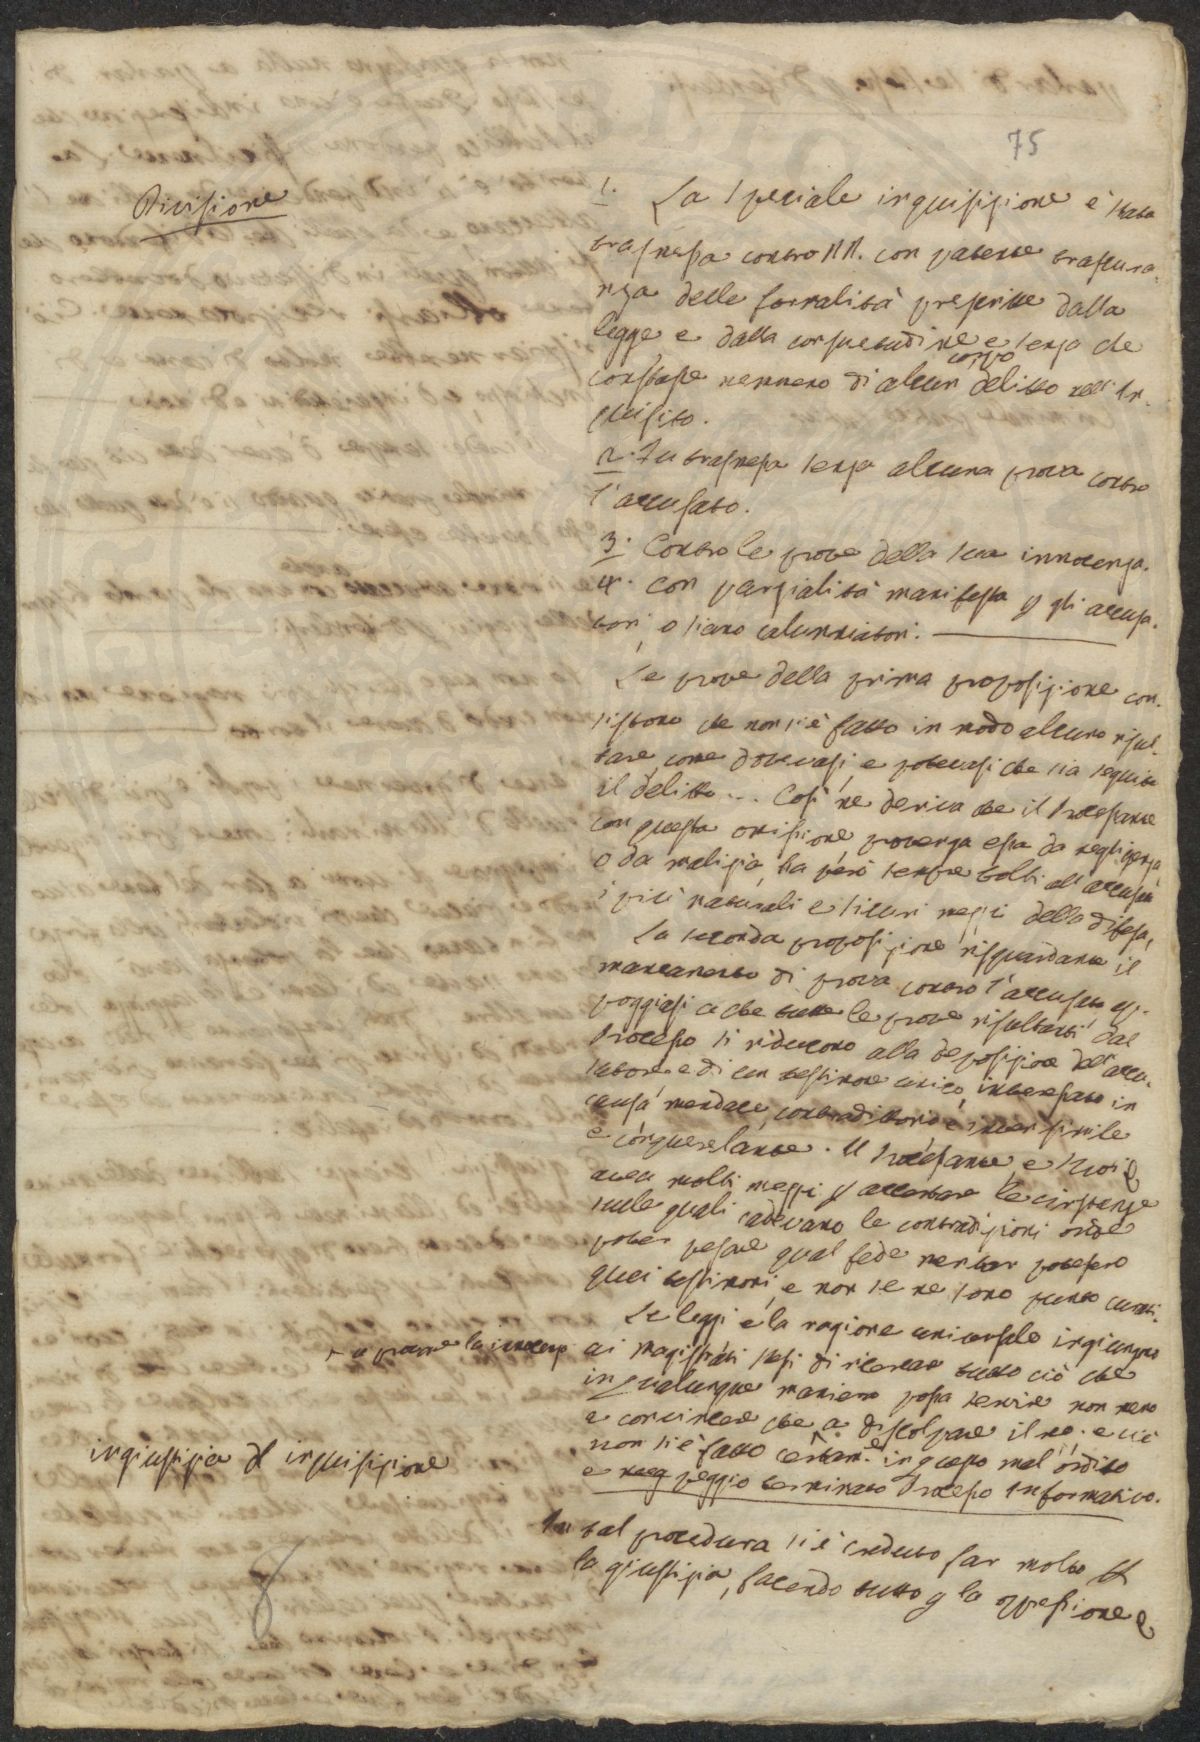 75
Divisione
1. La speciale inquisizione è stata
trasmessa contro NN. con patente trascura-
nza delle formalità prescritte dalla
legge e dalla consuetudine e senza che
corpo
constasse nemmeno di alcun delitto nell'In-
quisito.
2. Fu trasmessa senza alcuna prova contro
l'accusato.
3. Contro le prove della sua innocenza.
4. Con parzialità manifesta p gli accusa-
tori, o siano calunniatori.
Le prove della prima proposizione con-
sistono che non si è fatto in modo alcuno risul-
tare come dovevasi e potevasi che sia seguito
il delitto... Così ne deriva che il Processante
con questa omissione, provenga essa da negligenza,
o da malizia, ha però sempre tolti all'accusato
i più naturali e sicuri mezzi della difesa.
La seconda proposizione risguardante il
mancamento di prova contro l'accusato ap-
poggiasi a che tutte le prove risultanti dal
Processo si riducono alla deposizione dell'accu-
satore e di un testimone unico, interessato in
causa mendace, contradittorio e inverisimile
e conquerelante. Il Processante e
avea molti mezzi p accertare le circstanze
sulle quali cadevano le contradizioni onde
poter pesare qual fede meritar potessero
quei testimoni, e non se ne sono punto curati.
Le leggi e la ragione universale ingiungono
+ a provare la innocenza
ai magistrati stessi di ricercare tutto ciò che
in qualunque maniera possa servire non meno
a convincere che a discolpare il reo. e ciò
non si è fatto certam.e in questo mal ordito
e peggio terminato Processo Informativo.
ingiustizia d inquisizione
In tal procedura si è creduto far molto p
la giustizia, facendo tutto p la oppressione e
8